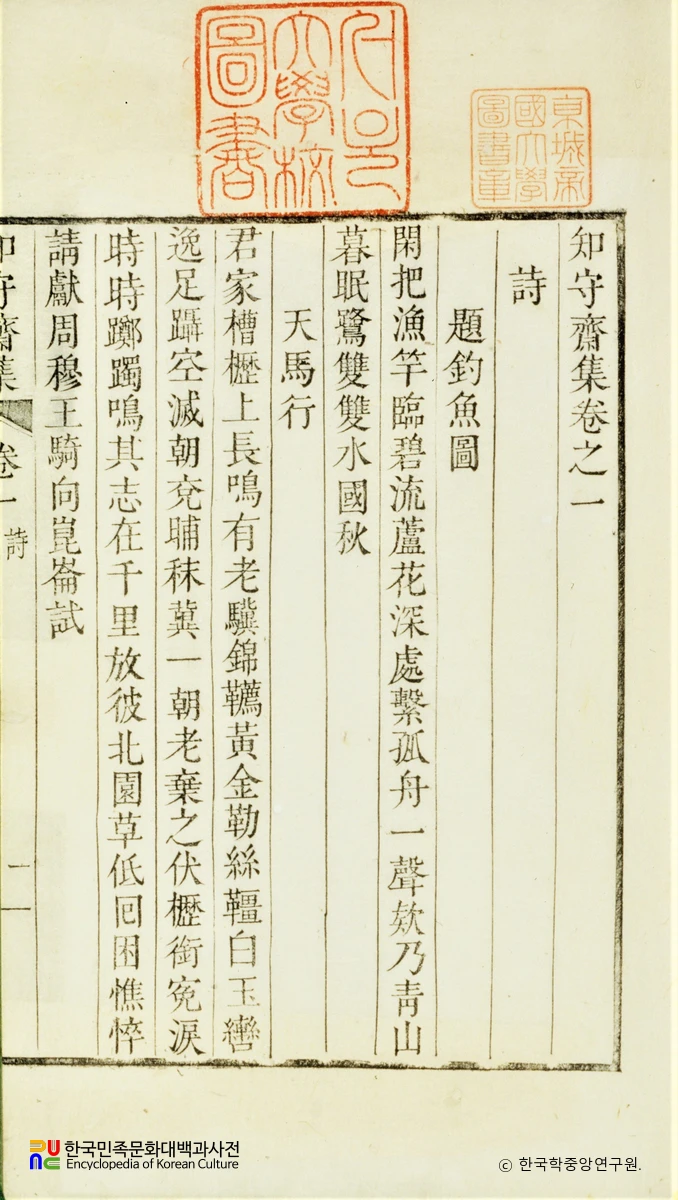 知守齋集卷之一
詩
題釣魚圖
閑把漁竿臨碧流蘆花深處繫孤舟一聲欸乃青山
暮眠鷺雙雙水國秋
天馬行
君家槽櫪上長鳴有老驥錦韉黃金勒絲韁白玉轡
逸足躡空滅朝兗晡秣冀一朝老棄之伏櫪銜寃淚
時時躑躅鳴其志在千里放彼北園草低回困憔悴
請獻周穆王騎向崑崙試
知守齋集
卷一
詩
一
東城帝
國大學
圖書章
大學校
圖書
한국민족문화대백과사전
Encyclopedia of Korean Culture
ⓒ 한국학중앙연구원.